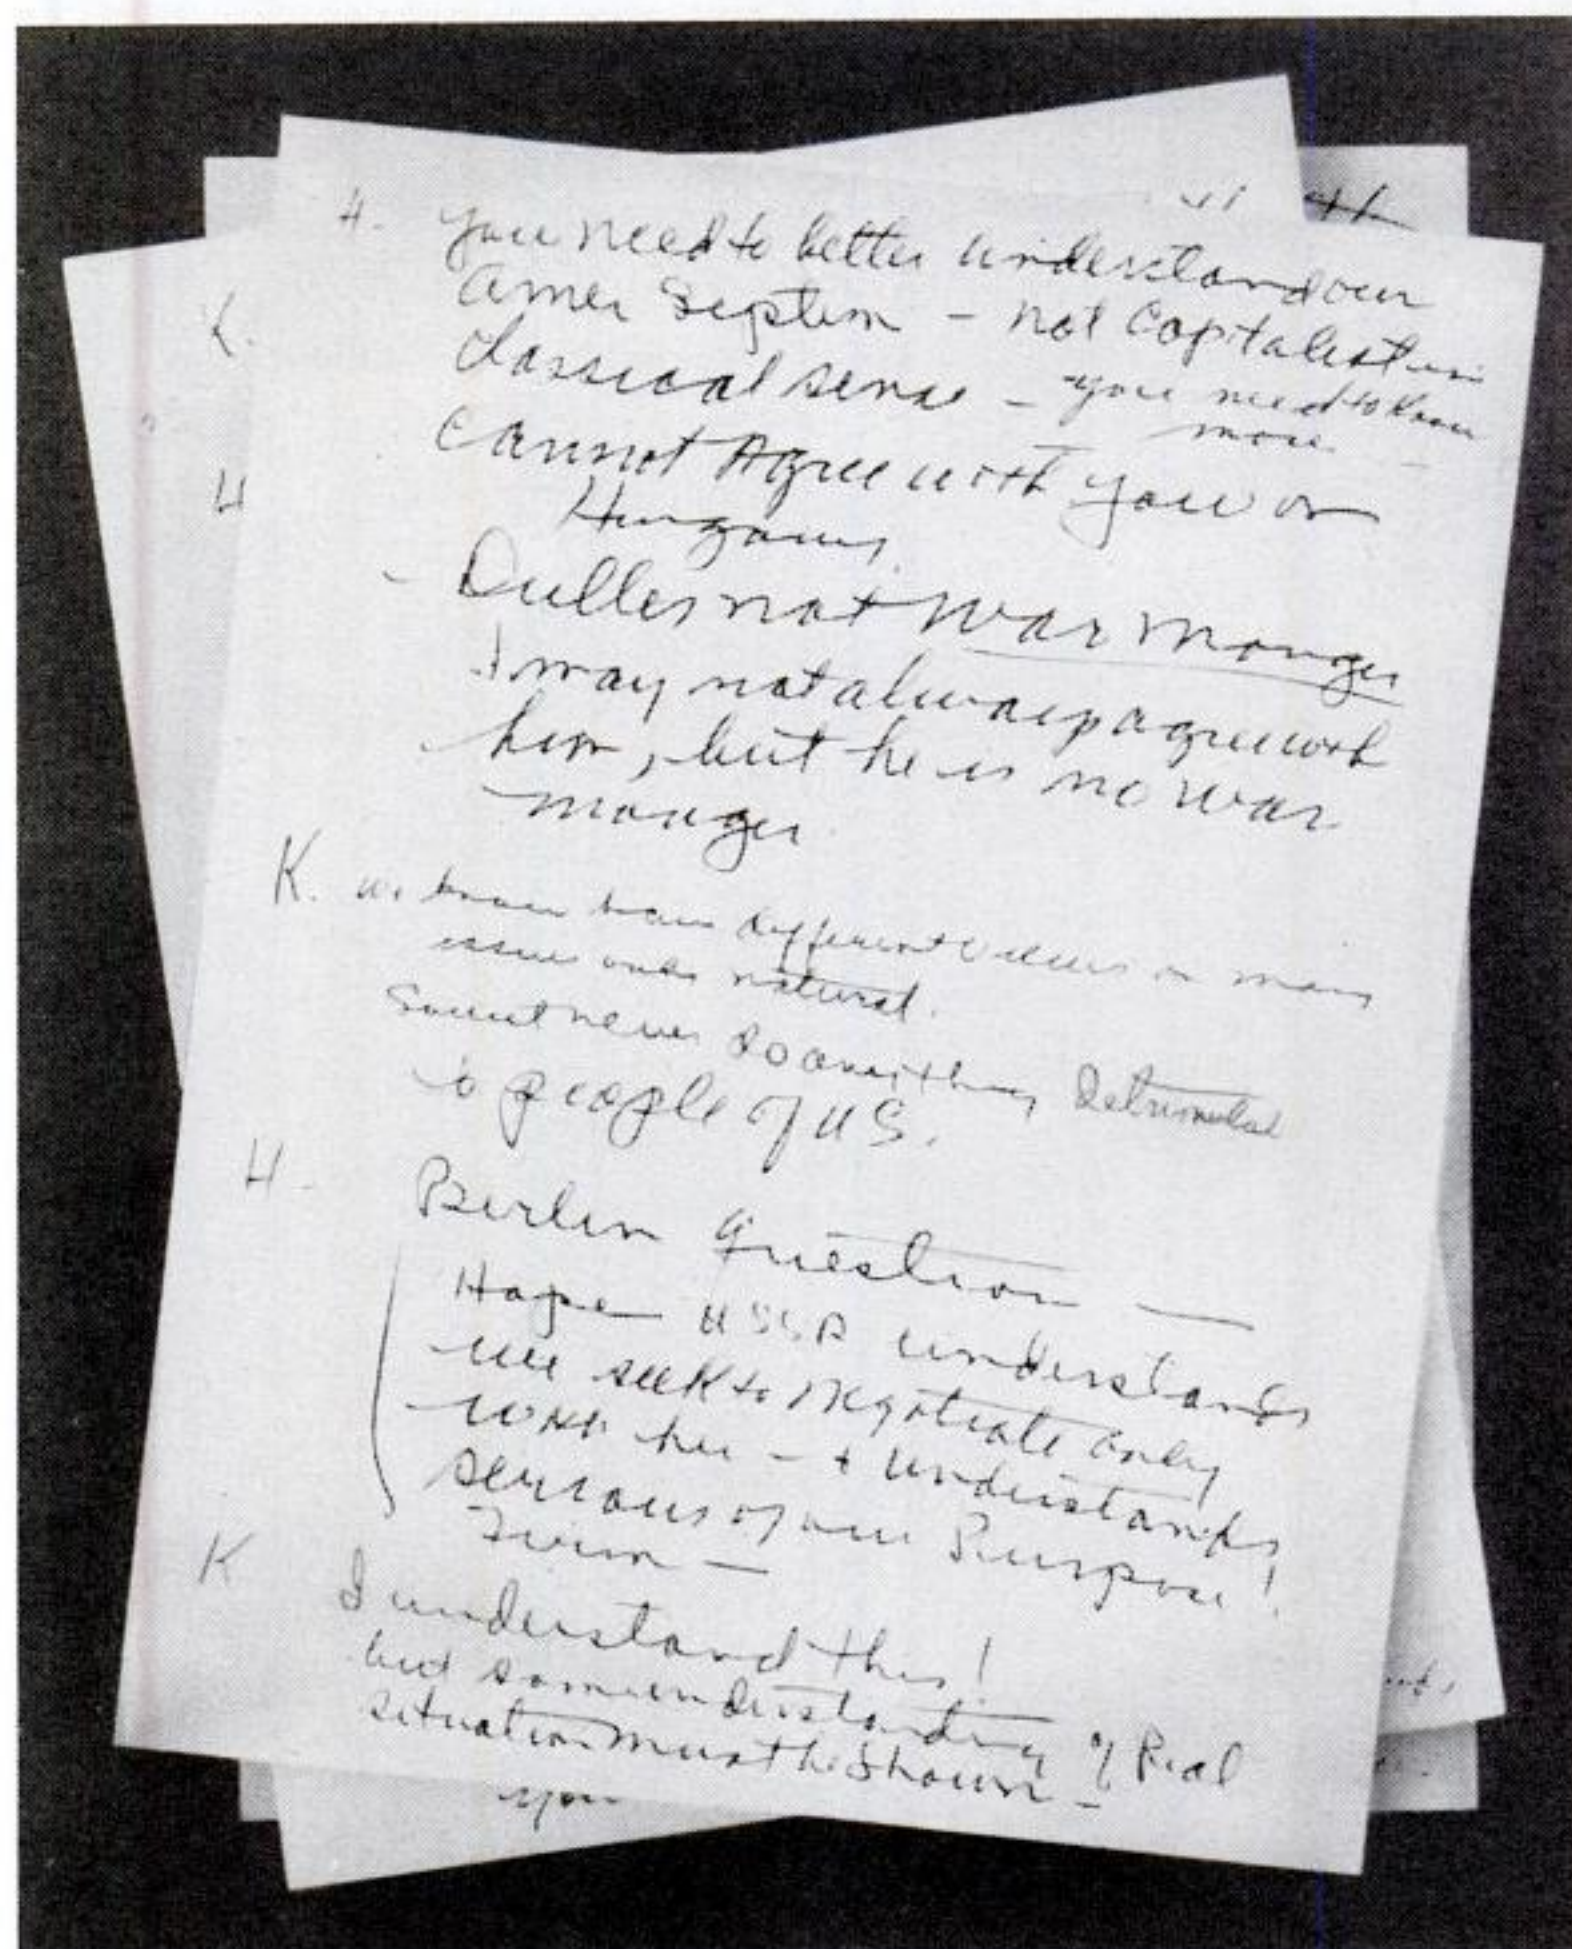 H. You need to better understand our
Amer System - not Capitalist in
K.
classical sense - you need to know
more
Cannot Agree with you on
H
Hungary.
- Dulles not War Monger
I may not always agree with
him, but he is no war
monger
K. we know have different views on many
issues only natural.
Soviet never do anything Detrimental
to people of US.
H. Berlin Question -
Hope USSR understands
we seek to negotiate only
with her - + understands
serious of our Purpose!
Firm -
K I understand this!
but some understanding of Real
situation must be shown -
you